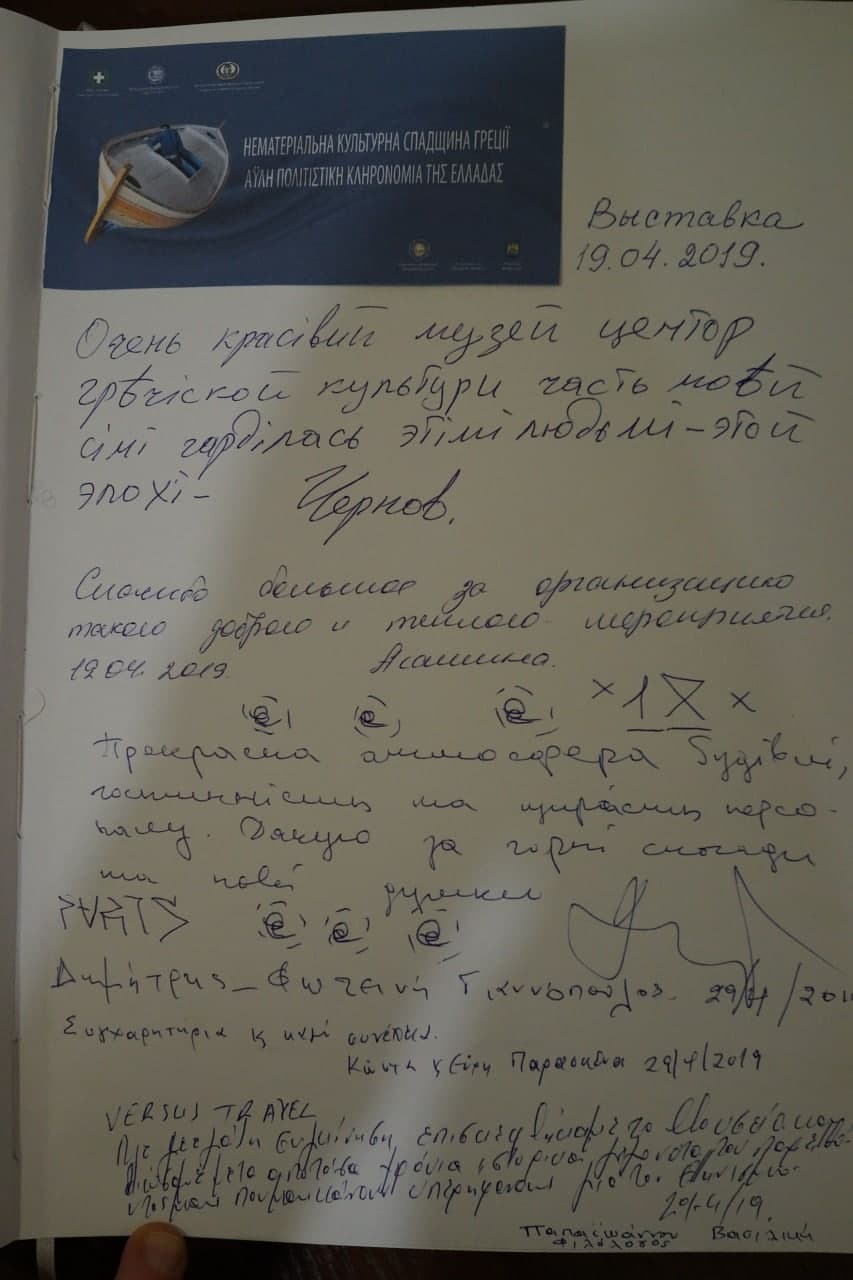 НЕМАТЕРІАЛЬНА КУЛЬТУРНА СПАДЩИНА ГРЕЦІЇ
ΑΫΛΗ ΠΟΛΙΤΙΣΤΙΚΗ ΚΛΗΡΟΝΟΜΙΑ ΤΗΣ ΕΛΛΑΔΑΣ
Выставка
19.04.2019.
Очень красівий музей центор
грѣчіской культури часть моѣй
сімі гарділась этімі людьмі – этой
эпохі – Чернов.
Спасибо большое за организацию
такого доброго и теплого мероприятия.
19.04.2019.
× 1 X ×
Прекрасна атмосфера будівлі,
гостинністиь та щирість персо-
налу. Дякую за гарні спогади
та нові думки
Δημήτρης – Φωτεινή Γιαννόπουλος 29/4/201
Συγχαρητήρια κ καλή συνέχεια.
Παρασκευα 29/4/2019
VERSUS TRAVEL
Με μεγάλη συγκίνηση επισκεφθήκαμε το Μουσείο και
μετά από τόσα χρόνια ιστορικά γεγονότα του
υπερήφανους για τον Ελληνισμό.
29-4/19.
Παπαϊωάννου Βασιλική
Φιλόλογος